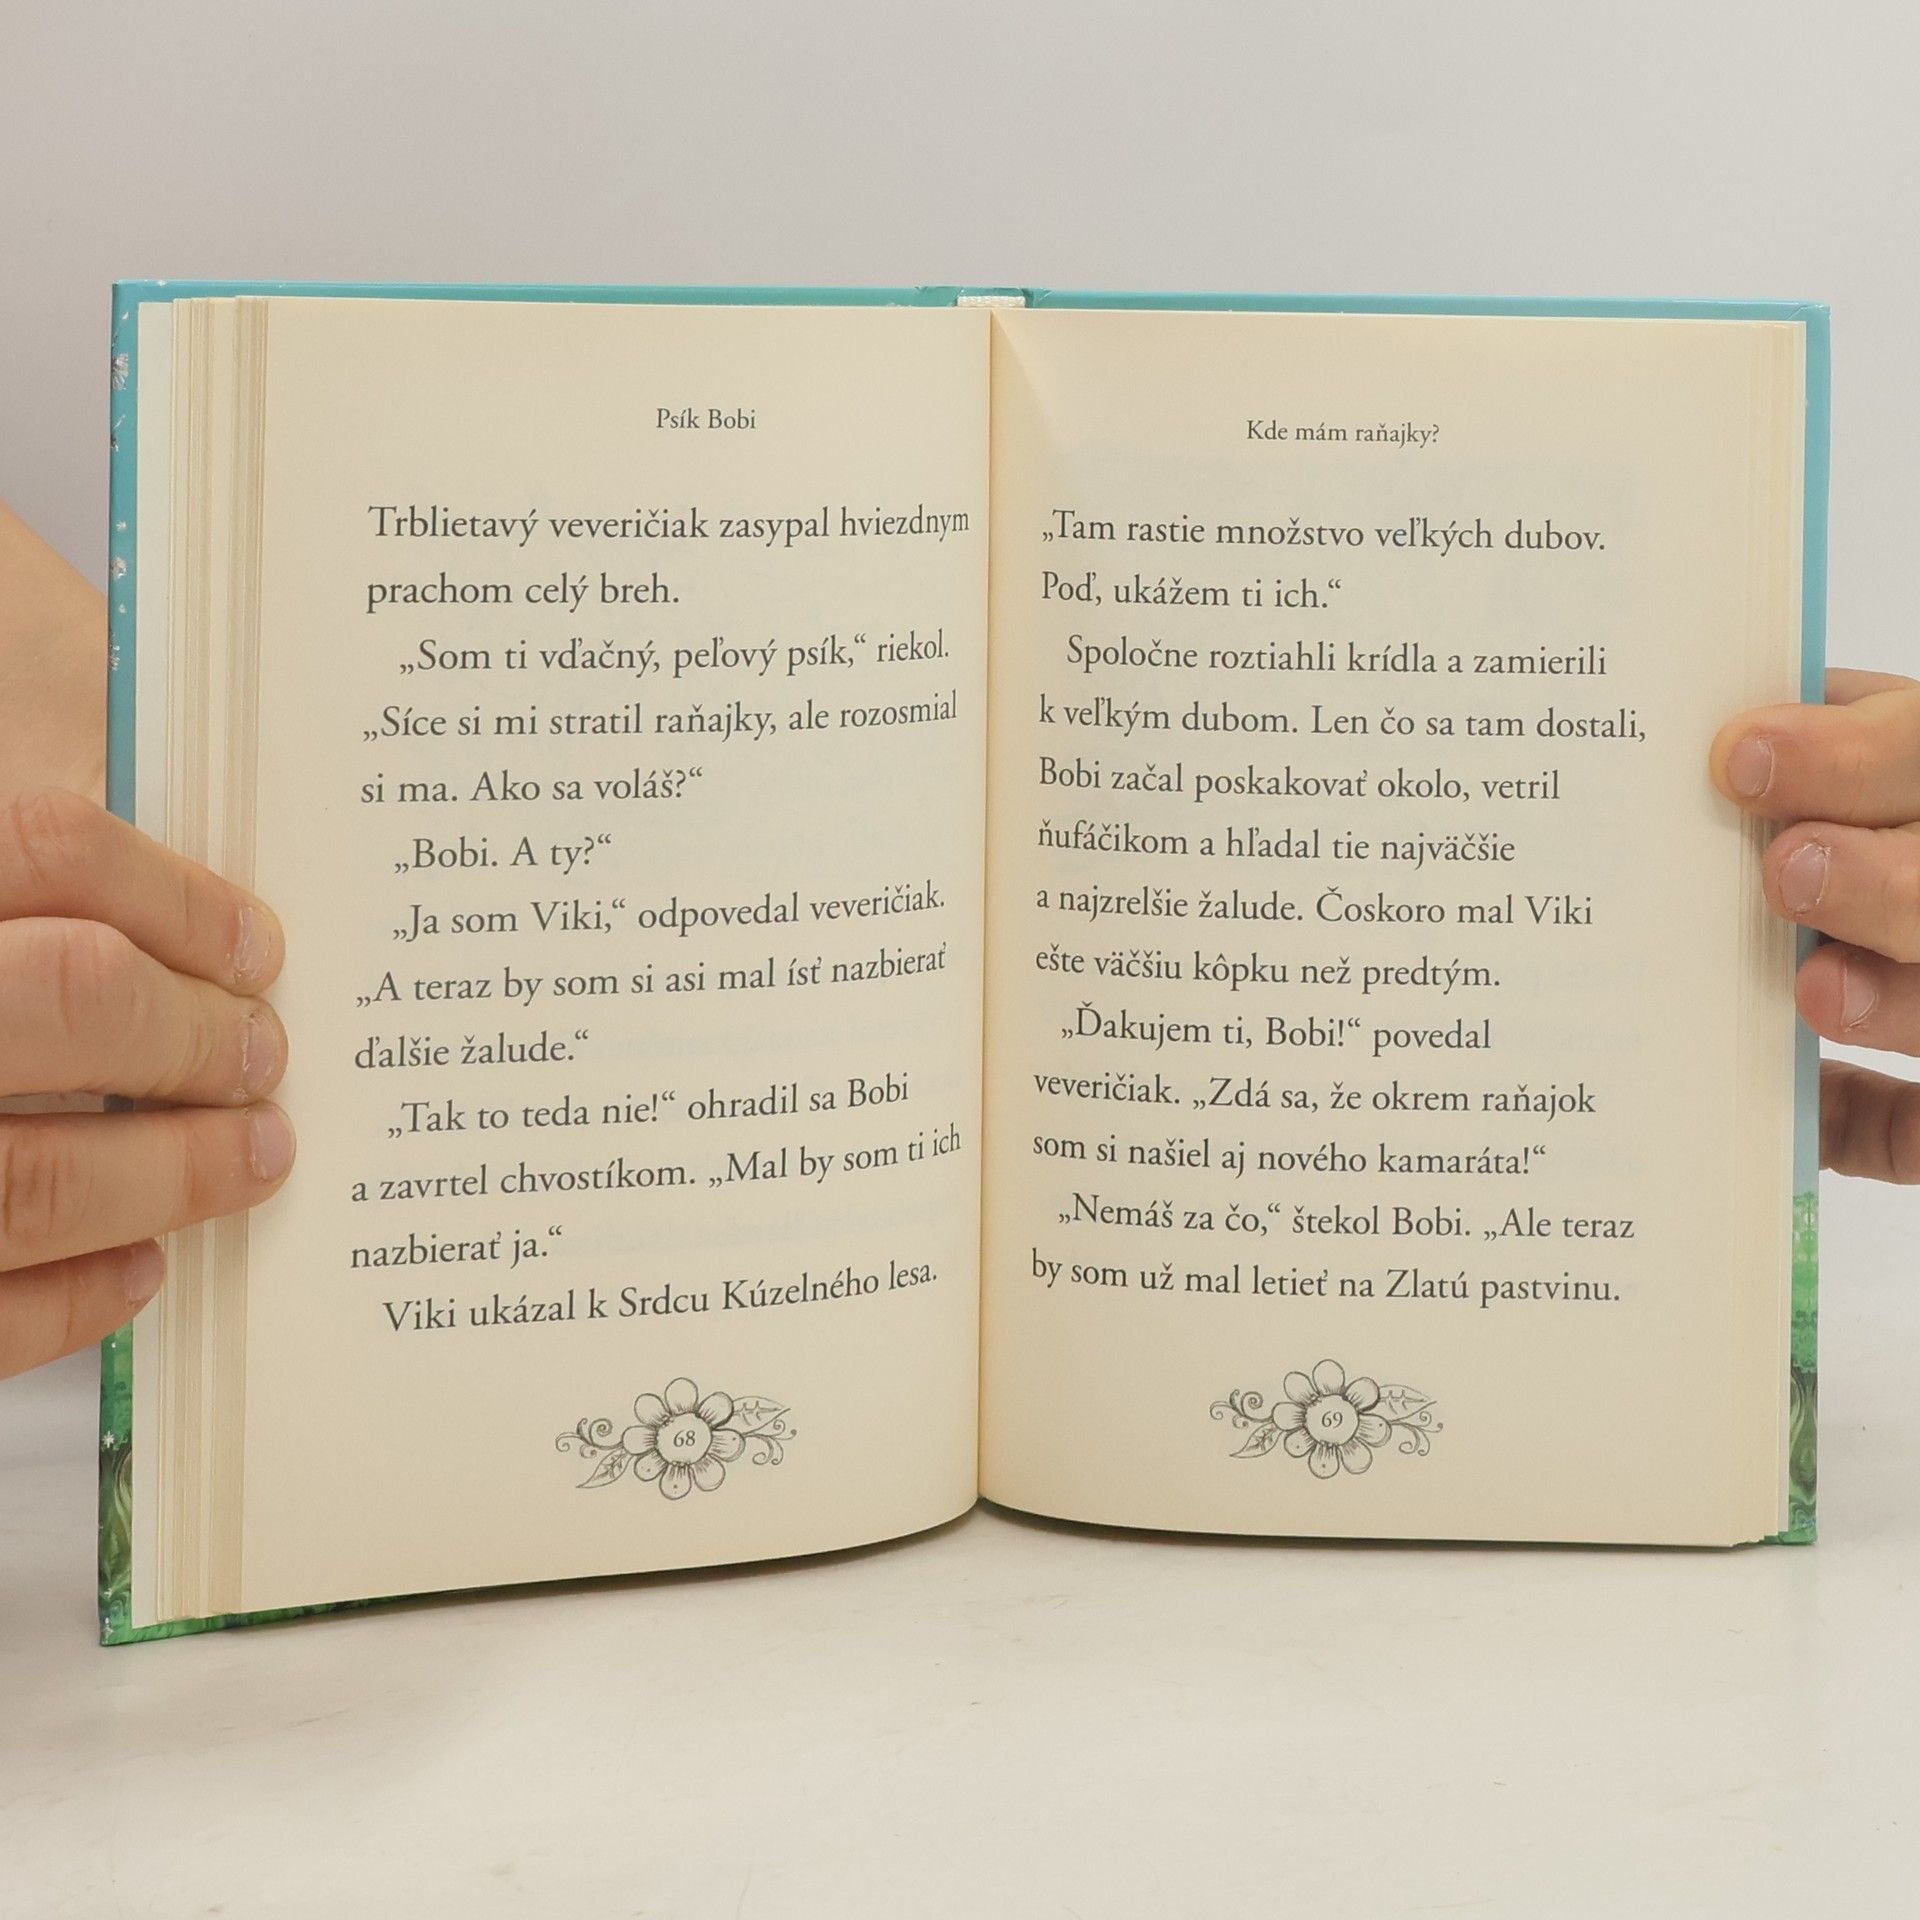 Psík Bobi
Trblietavý veveričiak zasypal hviezdnym
prachom celý breh.
„Som ti vďačný, peľový psík,“ riekol.
„Síce si mi stratil raňajky, ale rozosmial
si ma. Ako sa voláš?“
„Bobi. A ty?“
„Ja som Viki,“ odpovedal veveričiak.
„A teraz by som si asi mal ísť nazbierať
ďalšie žalude.“
„Tak to teda nie!“ ohradil sa Bobi
a zavrtel chvostíkom. „Mal by som ti ich
nazbierať ja.“
Viki ukázal k Srdcu Kúzelného lesa.
68
Kde mám raňajky?
„Tam rastie množstvo veľkých dubov.
Poď, ukážem ti ich.“
Spoločne roztiahli krídla a zamierili
k veľkým dubom. Len čo sa tam dostali,
Bobi začal poskakovať okolo, vetril
ňufáčikom a hľadal tie najväčšie
a najzrelšie žalude. Čoskoro mal Viki
ešte väčšiu kôpku než predtým.
„Ďakujem ti, Bobi!“ povedal
veveričiak. „Zdá sa, že okrem raňajok
som si našiel aj nového kamaráta!“
„Nemáš za čo,“ štekol Bobi. „Ale teraz
by som už mal letieť na Zlatú pastvinu.
69